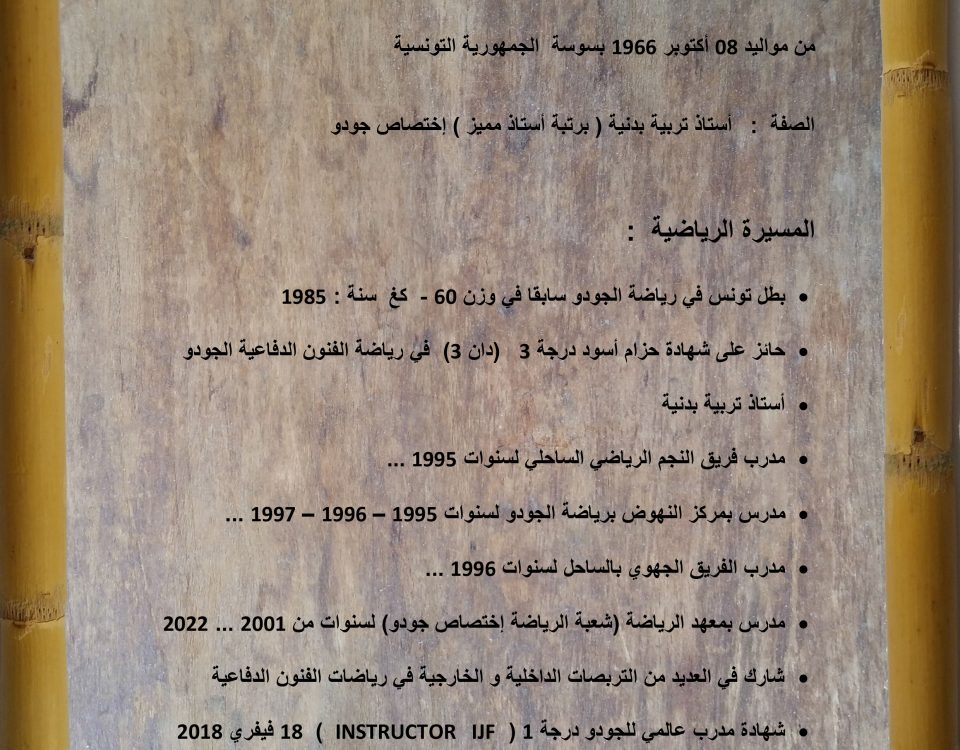 من مواليد 08 أكتوبر 1966 بسوسة الجمهورية التونسية
الصفة : أستاذ تربية بدنية ( برتبة أستاذ مميز ) إختصاص جودو
المسيرة الرياضية :
• بطل تونس في رياضة الجودو سابقا في وزن 60 - كغ سنة : 1985
• حائز على شهادة حزام أسود درجة 3 (دان 3) في رياضة الفنون الدفاعية الجودو
• أستاذ تربية بدنية
• مدرب فريق النجم الرياضي الساحلي لسنوات 1995 ...
• مدرس بمركز النهوض برياضة الجودو لسنوات 1995 – 1996 – 1997 ...
• مدرب الفريق الجهوي بالساحل لسنوات 1996 ...
• مدرس بمعهد الرياضة (شعبة الرياضة إختصاص جودو) لسنوات من 2001 ... 2022
• شارك في العديد من التربصات الداخلية و الخارجية في رياضات الفنون الدفاعية
• شهادة مدرب عالمي للجودو درجة 1 ( INSTRUCTOR IJF ) 18 فيفري 2018